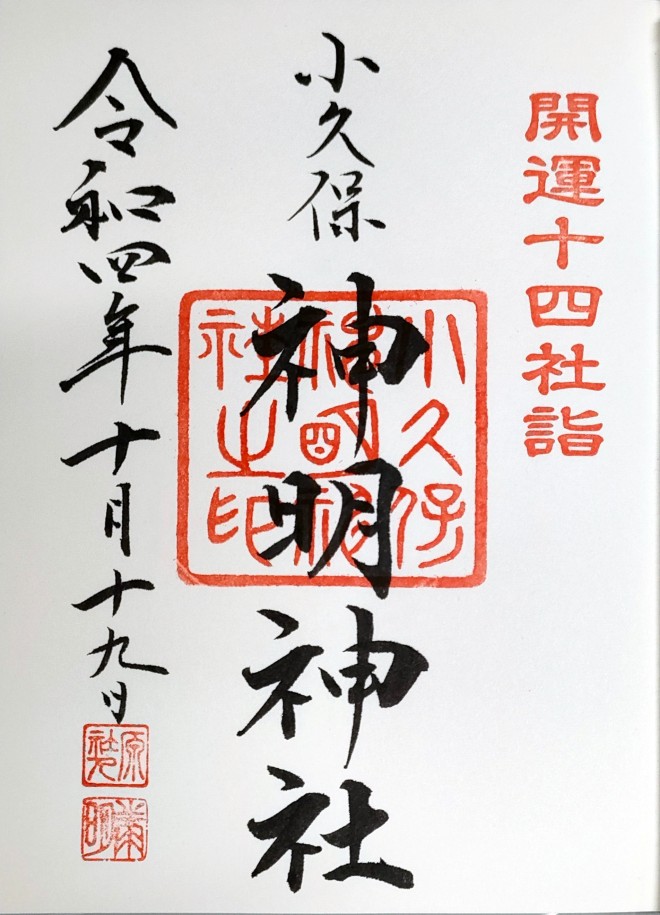 開運十四社詣
小久保
神明神社
小久保
神明神
社之印
令和四年十月十九日